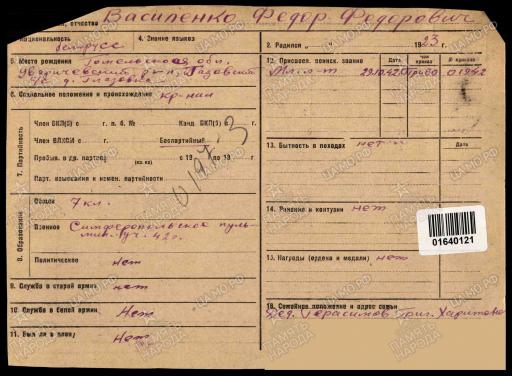 отчество Василенко Федор Федорович
Национальность белрусс
4. Знание языков
2. Родился 1923
5. Место рождения Гомельская обл.
Уваричевский р-н,
6. Социальное положение и происхождение кр-нин
7. Партийность
Член ВКП(б) с г. п. б. №
Канд. ВКП(б) г.
Член ВЛКСМ с г.
Беспартийный
Пребыв. в др. партиях
с 19 по 19 г.
Парт. взыскания и измен. партийности
8. Образование
Общее 7 кл.
Военное Симферопольское пуль-
мин. уч. 42 г.
Политическое нет
9. Служба в старой армии нет
10. Служба в белой армии Нет
11. Был ли в плену Нет
12. Присвоен. воинск. звание
Дата
Чей приказ
№ приказа
Мл. л-т
0194
13. Бытность в походах нет
Дата
14. Ранения и контузии нет
01640121
15. Награды (ордена и медали) нет
16. Семейное положение и адрес семьи
Герасимов Григ.
ПАМЯТЬ НАРОДА
ЦАМО.РФ